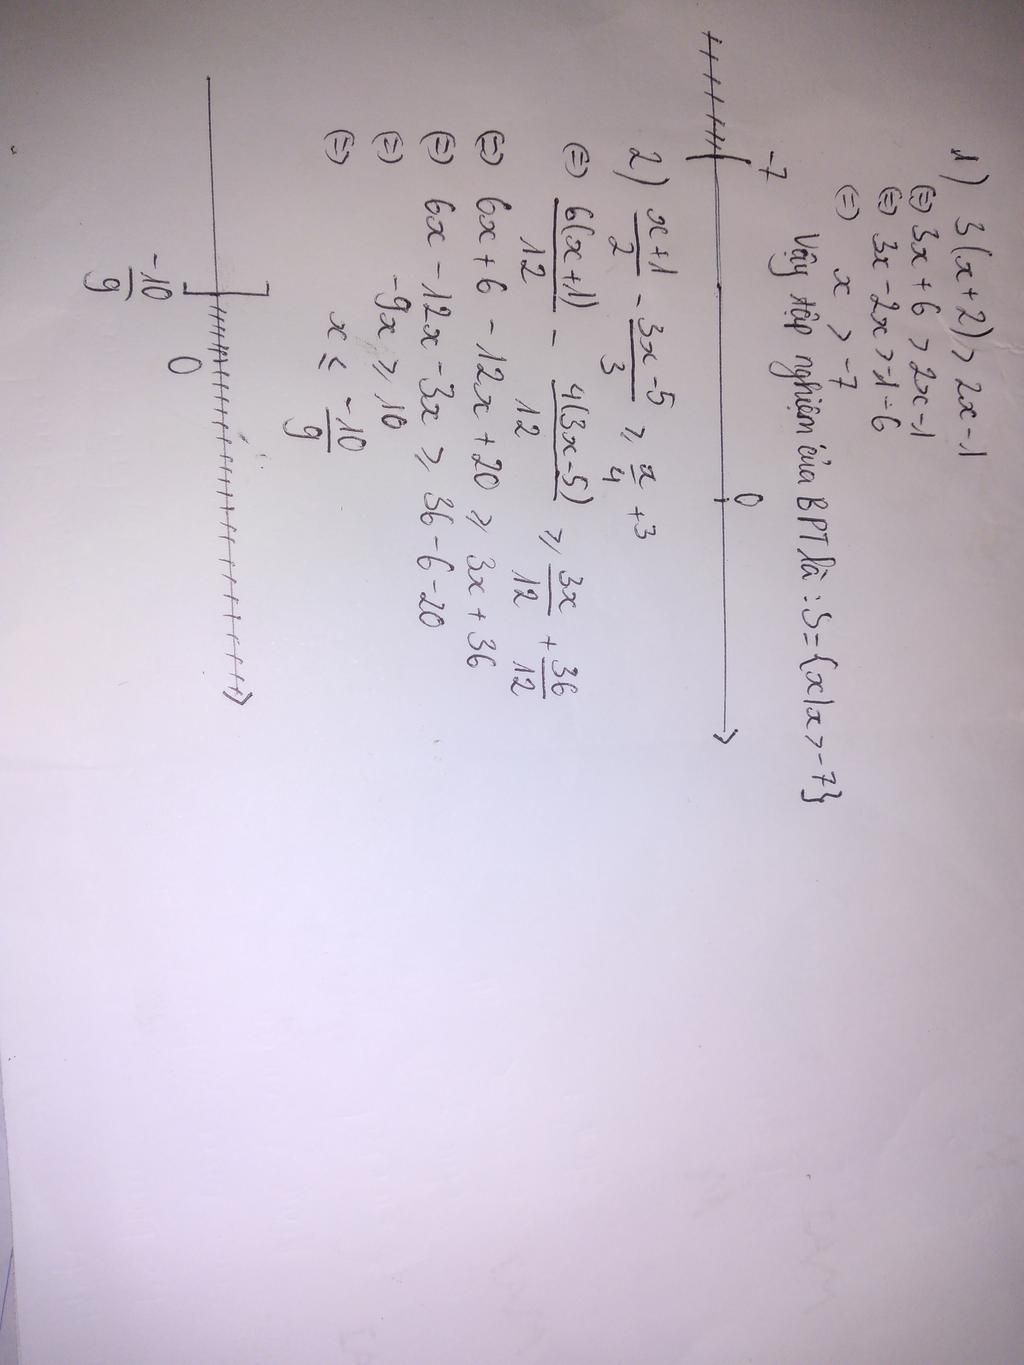 1) 3(x+2) > 2x-1
(=) 3x+6 > 2x-1
(=) 3x-2x > -1-6
(=) x > -7
Vậy tập nghiệm của BPT là : S={x|x>-7}
-7 0
2) x+1/2 - 3x-5/3 ≥ x/4 +3
(=) 6(x+1)/12 - 4(3x-5)/12 ≥ 3x/12 + 36/12
(=) 6x+6 - 12x+20 ≥ 3x+36
(=) 6x-12x-3x ≥ 36-6-20
(=) -9x ≥ 10
(=) x ≤ -10/9
-10/9 0